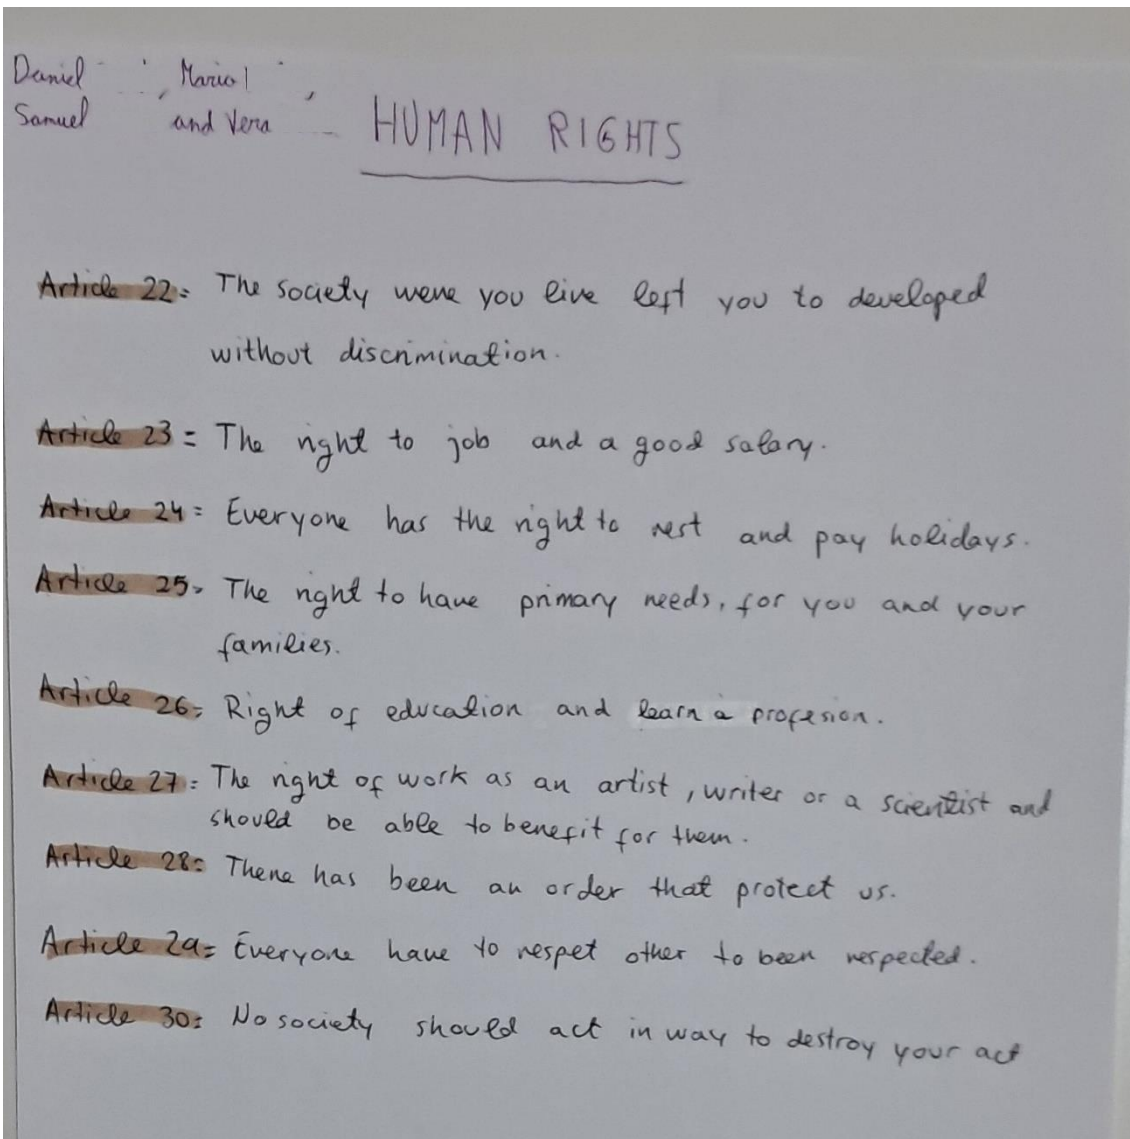 Daniel , Mario ,
Samuel and Vera
HUMAN RIGHTS
Article 22= The society were you live left you to developed
without discrimination.
Article 23= The right to job and a good salary.
Article 24= Everyone has the right to rest and pay holidays.
Article 25= The right to have primary needs, for you and your
families.
Article 26= Right of education and learn a profesion.
Article 27= The right of work as an artist, writer or a scientist and
should be able to benefit for them.
Article 28= There has been an order that protect us.
Article 29= Everyone have to respet other to been respected.
Article 30= No society should act in way to destroy your act